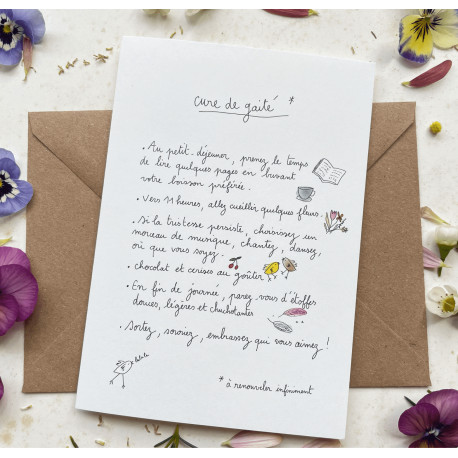 cure de gaité *
• Au petit-déjeuner, prenez le temps
de lire quelques pages en buvant
votre boisson préférée.
• Vers 11 heures, allez cueillir quelques fleurs.
• Si la tristesse persiste, choisissez un
morceau de musique, chantez, dansez,
où que vous soyez.
• chocolat et cerises au goûter
• En fin de journée, parez-vous d'étoffes
douces, légères et chuchotantes
• Sortez, souriez, embrassez qui vous aimez !
lalala
* à renouveler infiniment